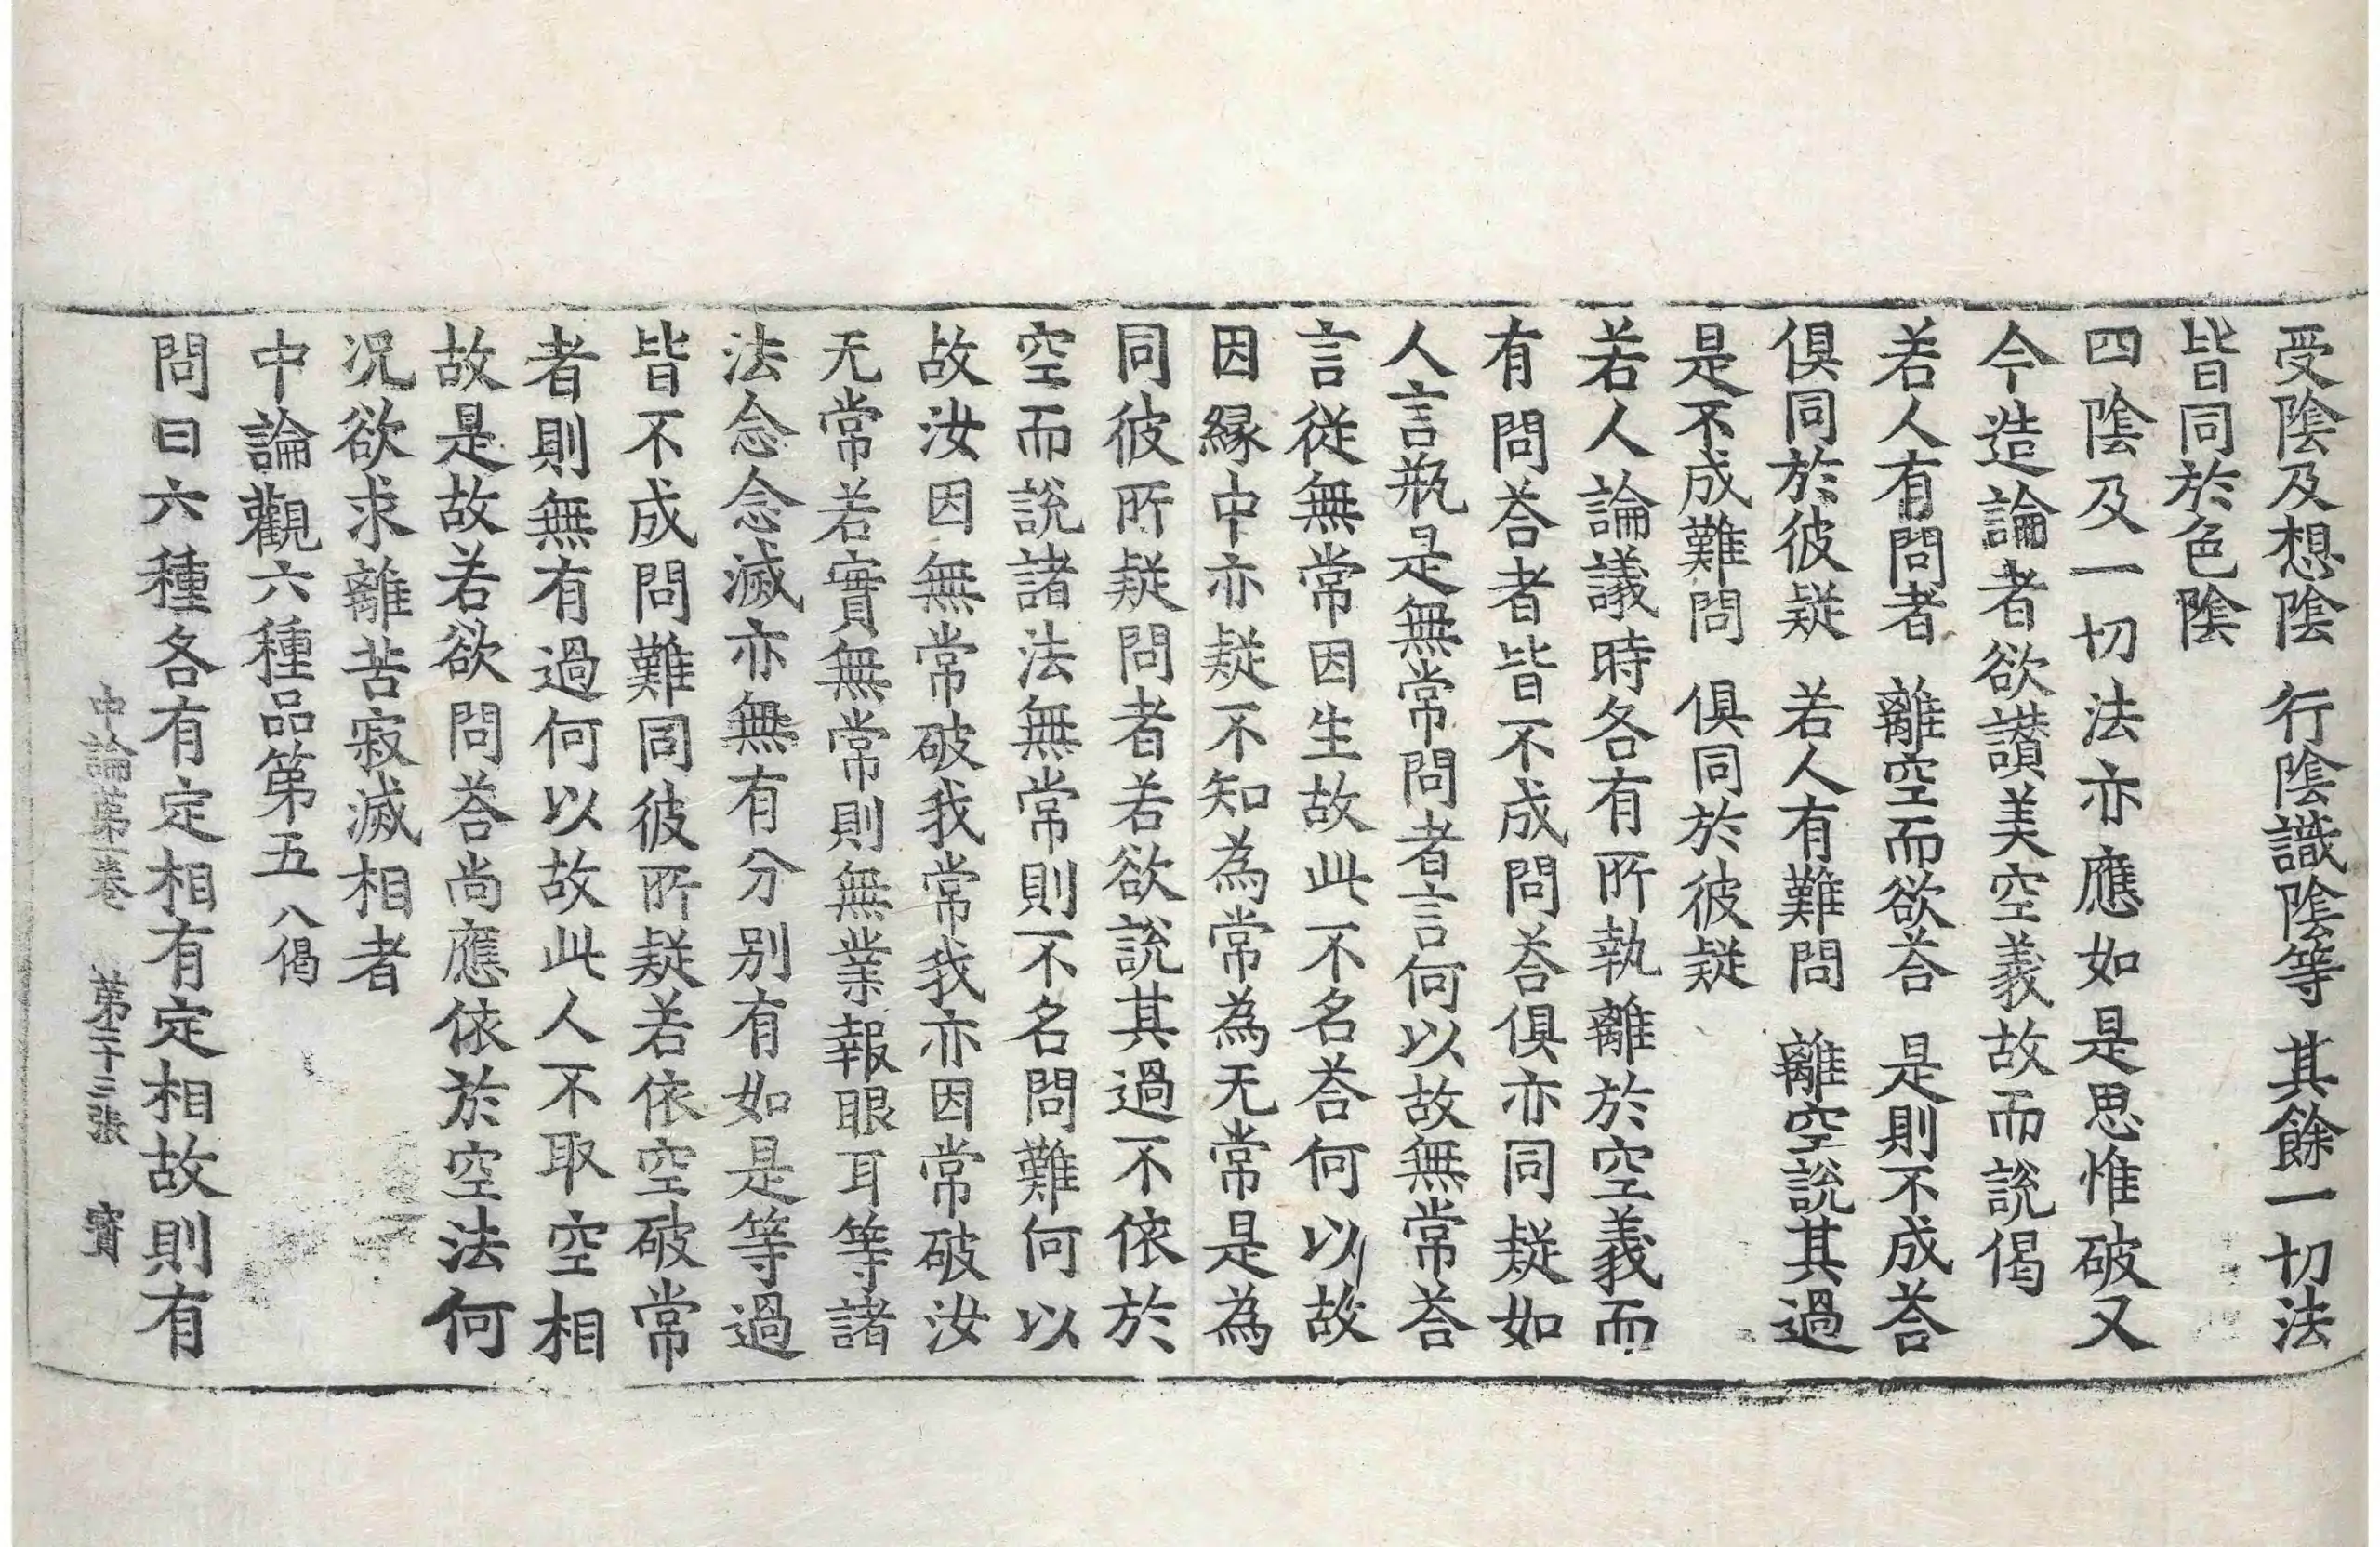 受陰及想陰　行陰識陰等　其餘一切法
皆同於色陰
四陰及一切法亦應如是思惟破又
今造論者欲讃美空義故而說偈
若人有問者　離空而欲荅　是則不成荅
俱同於彼疑　若人有難問　離空說其過
是不成難問　俱同於彼疑
若人論議時各有所執離於空義而
有問荅者皆不成問荅俱亦同疑如
人言瓶是無常問者言何以故無常荅
言從無常因生故此不名荅何以故
因縁中亦疑不知為常為无常是為
同彼所疑問者若欲說其過不依於
空而說諸法無常則不名問難何以
故汝因無常破我常我亦因常破汝
无常若實無常則無業報眼耳等諸
法念念滅亦無有分別有如是等過
皆不成問難同彼所疑若依空破常
者則無有過何以故此人不取空相
故是故若欲問荅尚應依於空法何
况欲求離苦寂滅相者
中論觀六種品第五八偈
問曰六種各有定相有定相故則有
中論第一卷　第二十三張　寶